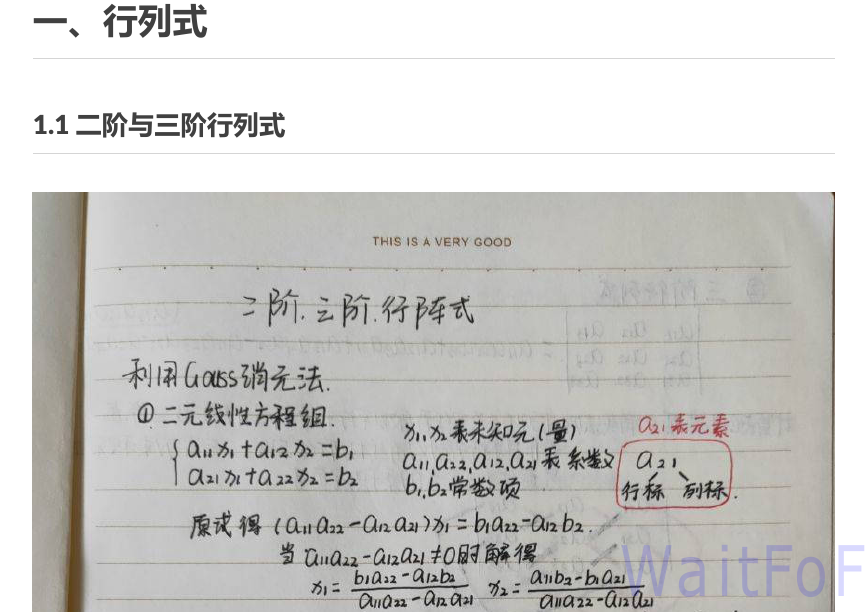 一、行列式
1.1 二阶与三阶行列式
THIS IS A VERY GOOD
二阶.三阶.行阵式
利用Gauss消元法.
① 二元线性方程组.
{ a₁₁x₁+a₁₂x₂=b₁
a₂₁x₁+a₂₂x₂=b₂
x₁,x₂表未知元(量)
a₁₁,a₂₂,a₁₂,a₂₁表系数
b₁,b₂常数项
a₂₁表元素
a₂₁
行标 列标.
原试得 (a₁₁a₂₂-a₁₂a₂₁)x₁=b₁a₂₂-a₁₂b₂.
当 a₁₁a₂₂-a₁₂a₂₁≠0时解得
x₁= (b₁a₂₂-a₁₂b₂)/(a₁₁a₂₂-a₁₂a₂₁) x₂= (a₁₁b₂-b₁a₂₁)/(a₁₁a₂₂-a₁₂a₂₁)
WaitFoF